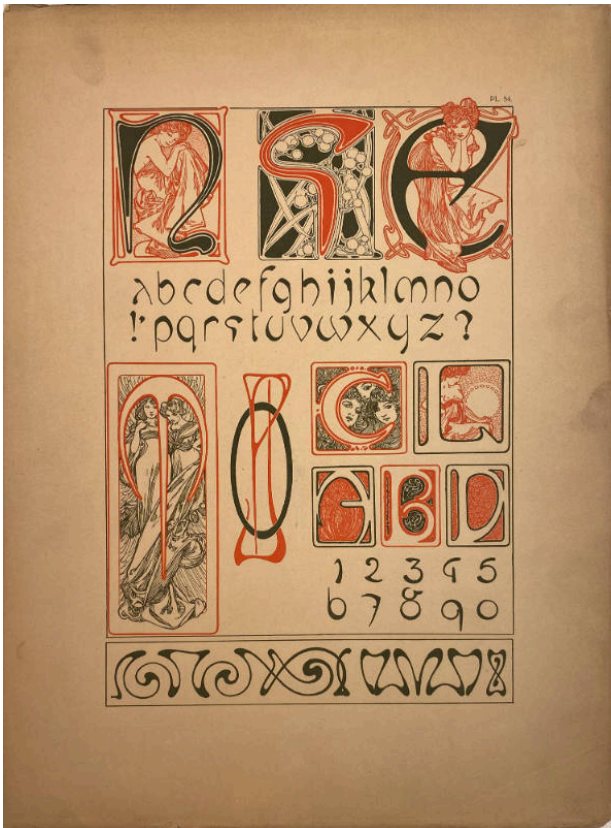 PL.
n S e
abcdefghijklmno
!'pqrstuvwxyz?
M O C
A B D
1 2 3 4 5
6 7 8 9 0